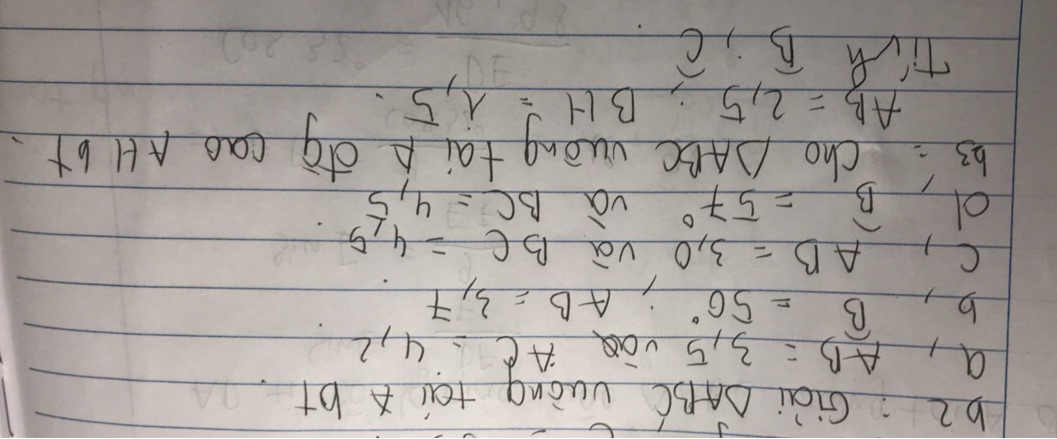 b2 : Giải ΔABC vuông tại A bt.
a, AB = 3,5 và AC = 4,2
b, B̂ = 50° ; AB = 3,7
c, AB = 3,0 và BC = 4,5
d, B̂ = 57° và BC = 4,5
b3 : Cho ΔABC vuông tại A đg cao AH bt.
AB = 2,5 ; BH = 1,5.
Tính B̂ ; Ĉ.